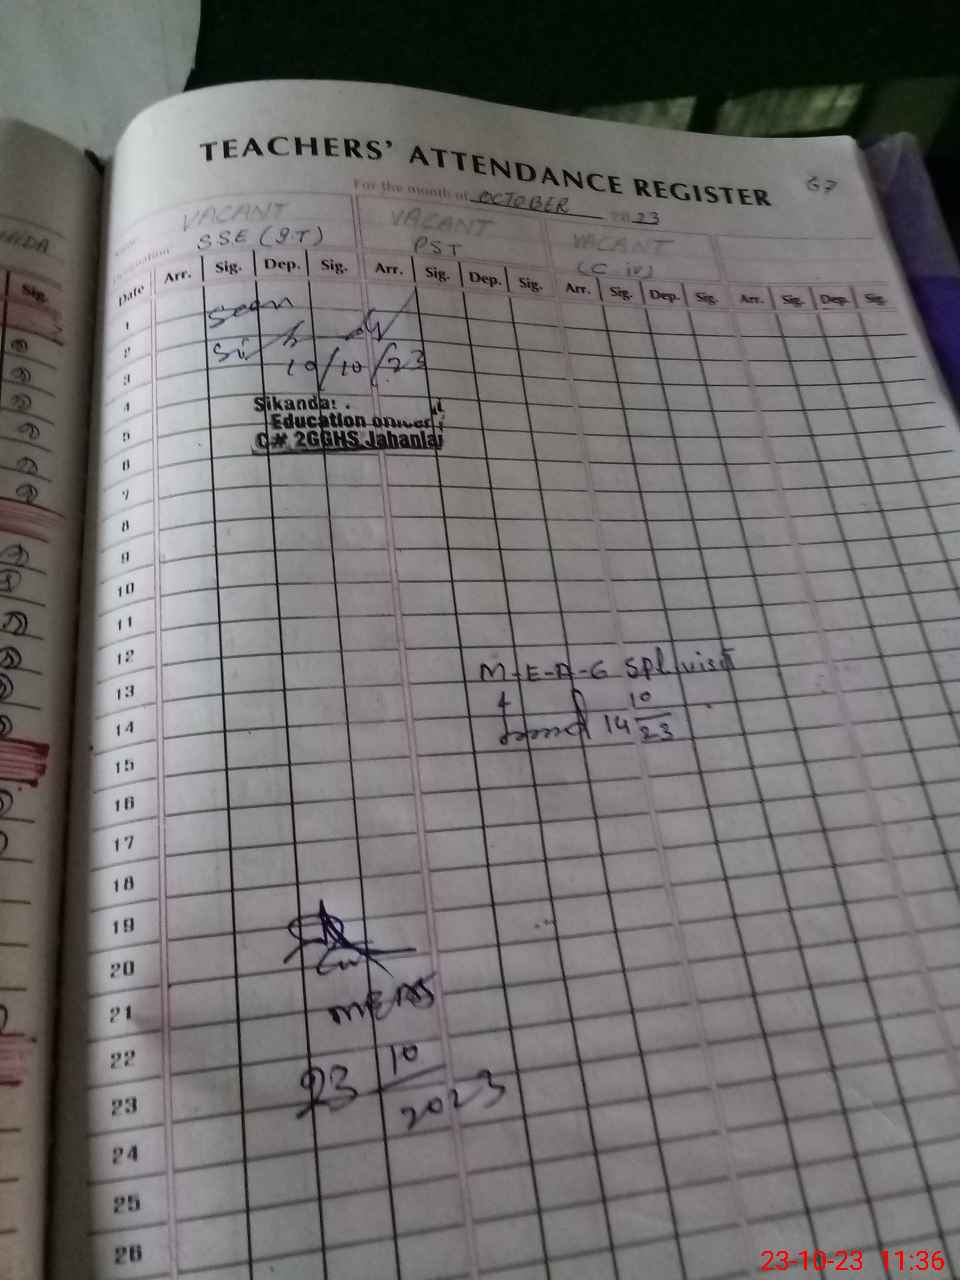 TEACHERS' ATTENDANCE REGISTER
67
For the month of OCTOBER 2023
VACANT VACANT VACANT
SSE (S.T) PST (C iv)
Date Arr. Sig. Dep. Sig. Arr. Sig. Dep. Sig. Arr. Sig. Dep. Sig. Arr. Sig. Dep. Sig.
Sig.
1
Seen
2
3
10/10/23
4
5
Education
C# 2GGHS Jahania
6
7
8
9
10
11
12
M-E-A-G Spl visit
13
14
14 10/23
15
16
17
18
19
20
21
22
23 10/2023
23
24
25
26
23-10-23 11:36